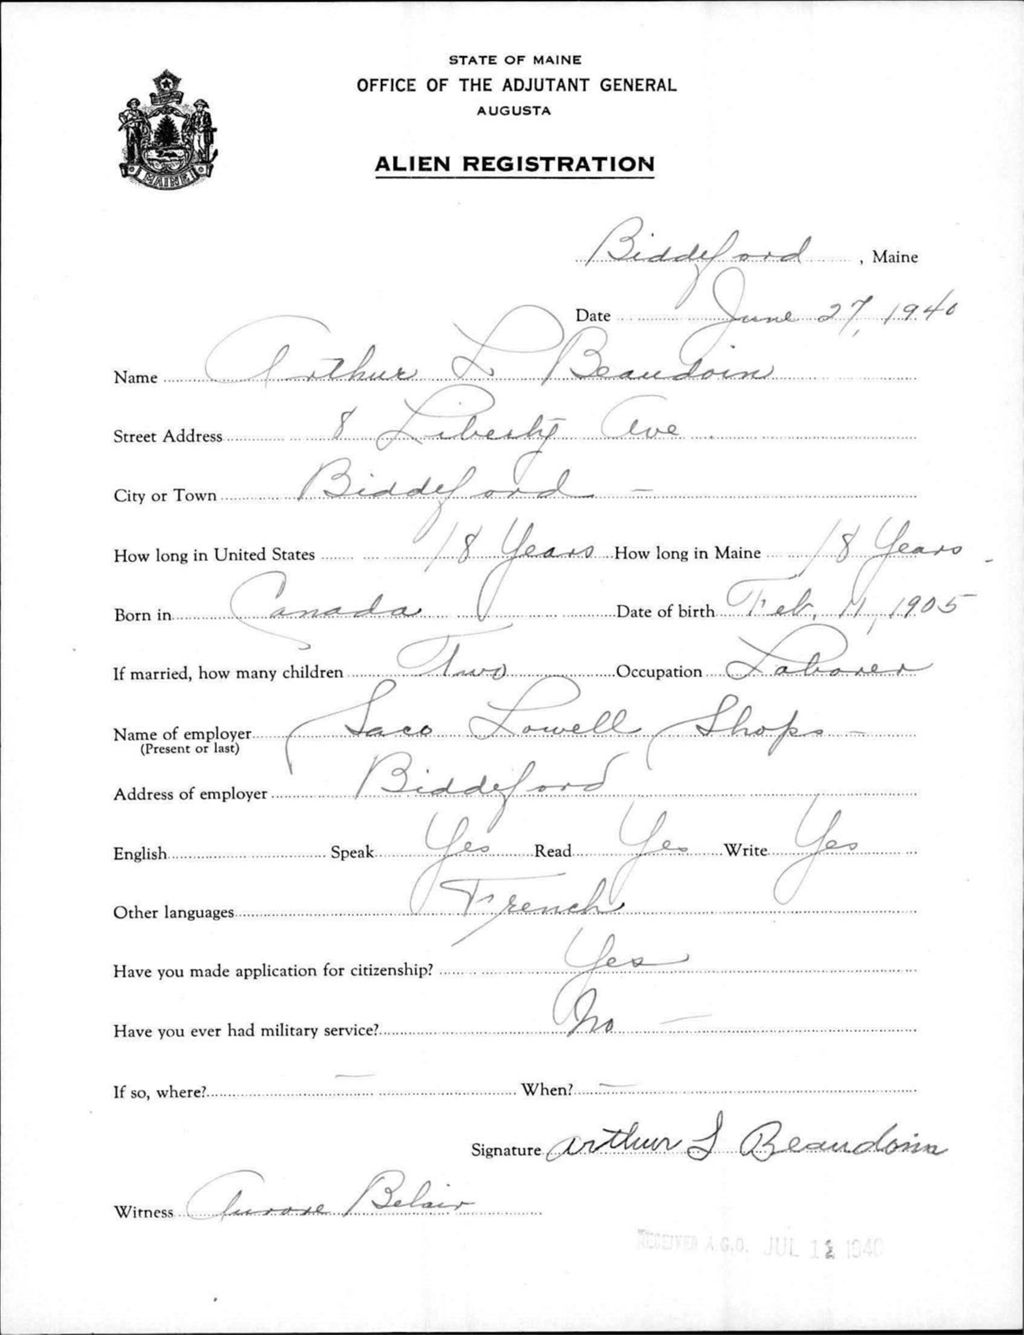 STATE OF MAINE
OFFICE OF THE ADJUTANT GENERAL
AUGUSTA
ALIEN REGISTRATION
MAINE
Biddeford, Maine
Date June 27, 1940
Name Arthur L Beaudoin
Street Address 8 Liberty Ave
City or Town Biddeford -
How long in United States 18 Years How long in Maine 18 Years -
Born in Canada Date of birth Feb. 11, 1905
If married, how many children Two Occupation Laborer
Name of employer Saco Lowell Shops -
(Present or last)
Address of employer Biddeford
English Speak Yes Read Yes Write Yes
Other languages French
Have you made application for citizenship? Yes
Have you ever had military service? No -
If so, where? - When? -
Signature Arthur L Beaudoin
Witness Aurore Belair
RECEIVED A.G.O. JUL 1940